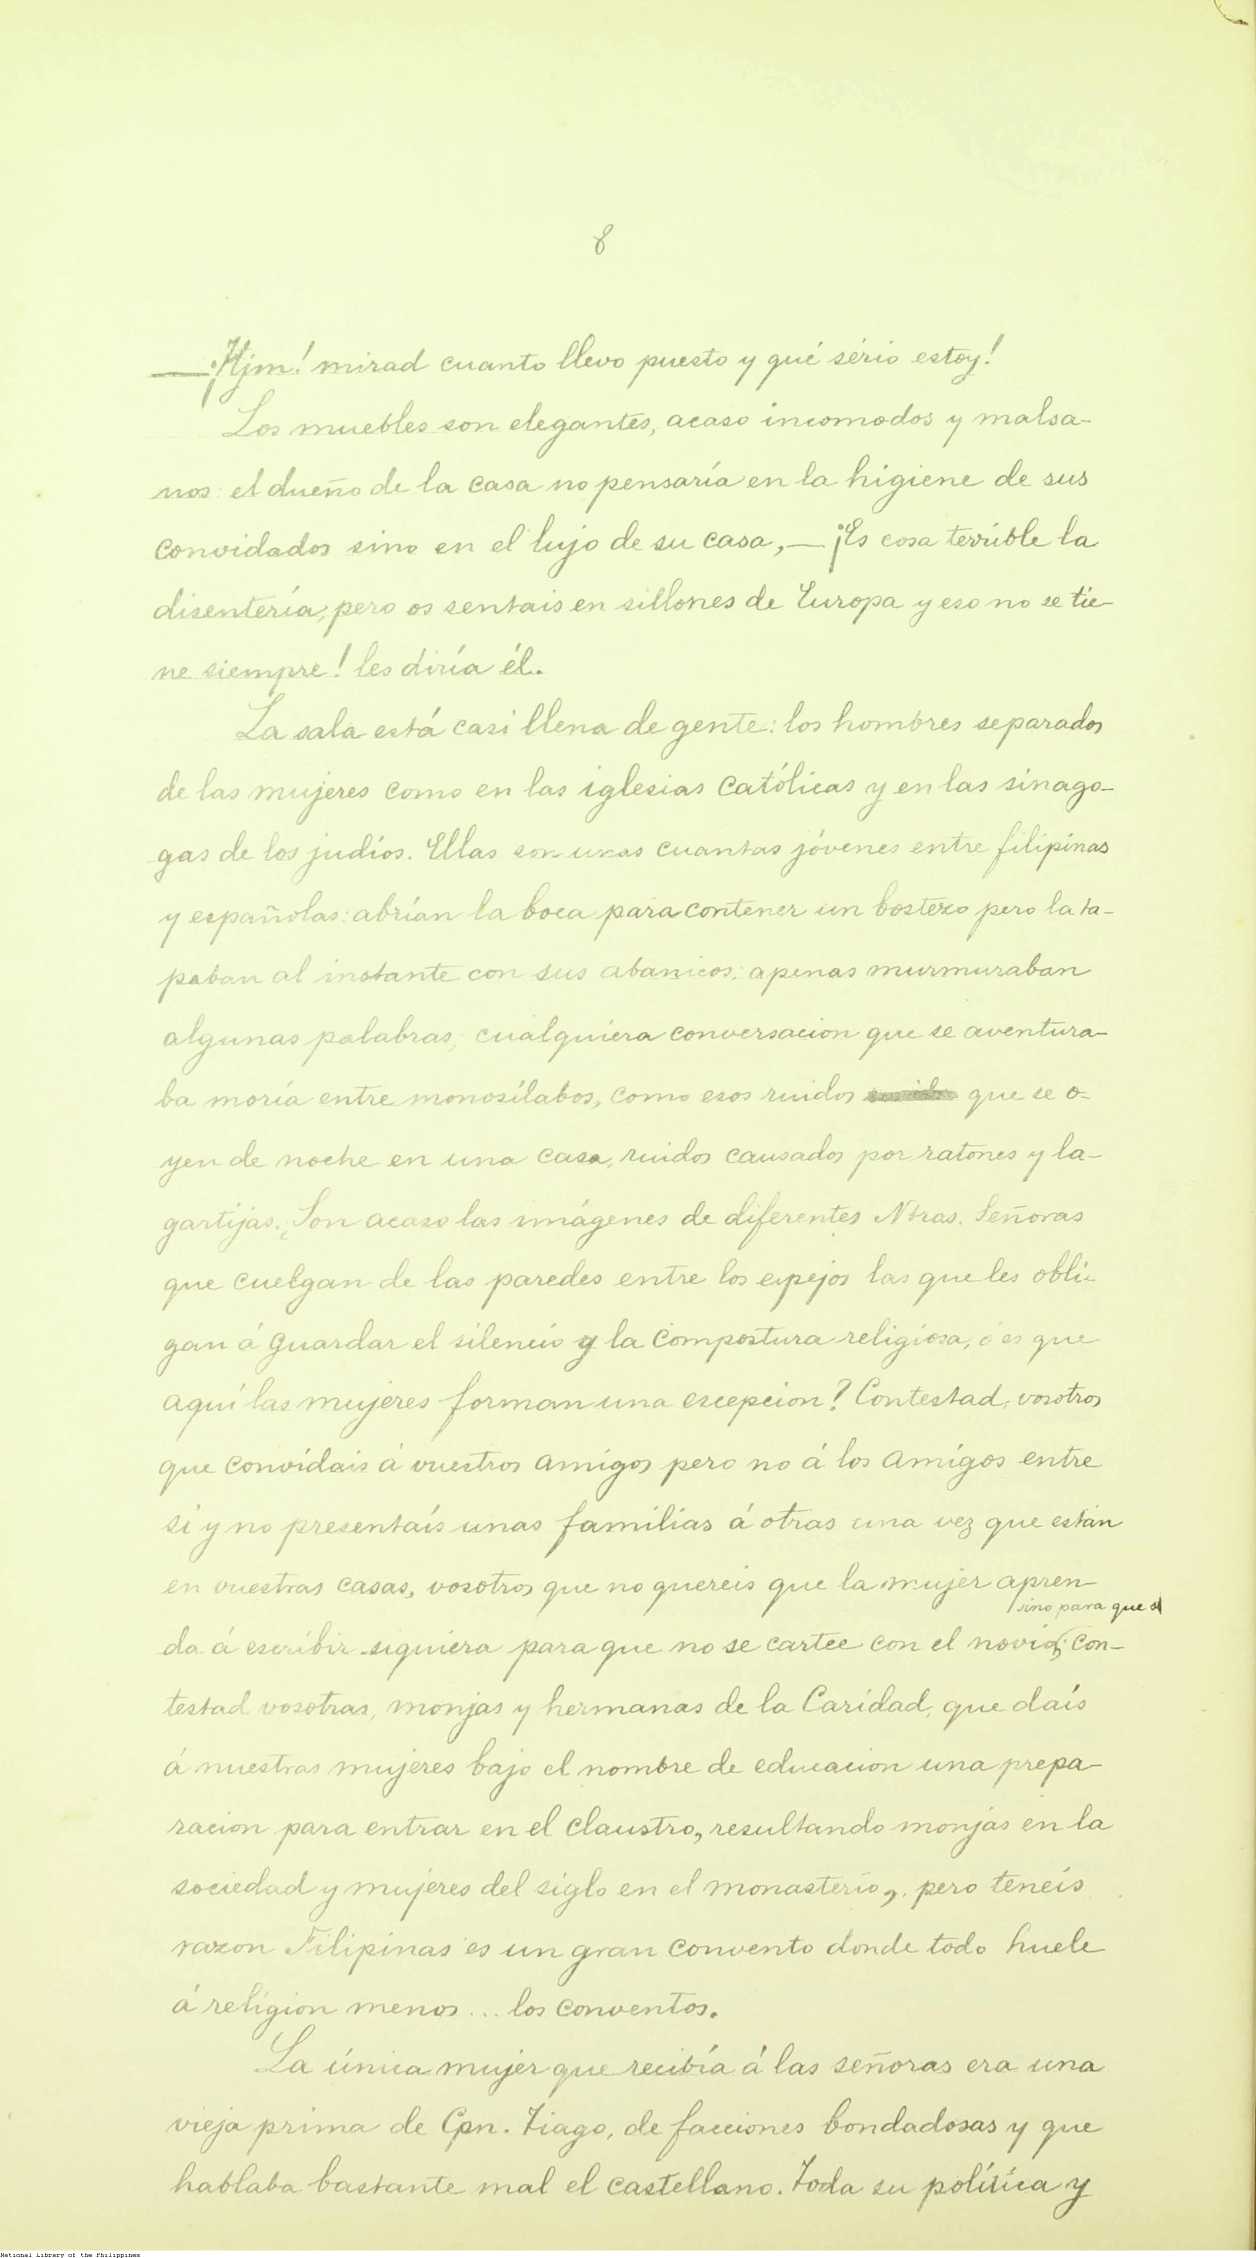 8
—¡Hjm! mirad cuanto llevo puesto y qué sério estoy!
Los muebles son elegantes, acaso incomodos y malsa-
nos: el dueño de la casa no pensaría en la higiene de sus
convidados sino en el lujo de su casa, — ¡Es cosa terrible la
disentería, pero os sentais en sillones de Europa y eso no se tie-
ne siempre! les diría él.
La sala está casi llena de gente: los hombres separados
de las mujeres como en las iglesias católicas y en las sinago-
gas de los judíos. Ellas son unas cuantas jóvenes entre filipinas
y españolas: abrían la boca para contener un bostezo pero la ta-
paban al instante con sus abanicos; apenas murmuraban
algunas palabras; cualquiera conversacion que se aventura-
ba moría entre monosílabos, como esos ruidos que se o-
yen de noche en una casa, ruidos causados por ratones y la-
gartijas. ¿Son acaso las imágenes de diferentes Ntras. Señoras
que cuelgan de las paredes entre los espejos las que les obli-
gan á guardar el silencio y la compostura religiosa, ó es que
aquí las mujeres forman una escepcion? Contestad, vosotros
que convidais á vuestros amigos pero no á los amigos entre
si y no presentais unas familias á otras una vez que están
en vuestras casas, vosotros que no quereis que la mujer apren-
sino para que
da á escribir siquiera para que no se cartee con el novio; con-
testad vosotras, monjas y hermanas de la Caridad, que dais
á nuestras mujeres bajo el nombre de educacion una prepa-
racion para entrar en el claustro, resultando monjas en la
sociedad y mujeres del siglo en el monasterio, pero teneis
razon Filipinas es un gran convento donde todo huele
á religion menos... los conventos.
La única mujer que recibía á las señoras era una
vieja prima de Cpn. Tiago, de facciones bondadosas y que
hablaba bastante mal el castellano. Toda su política y
National Library of the Philippines